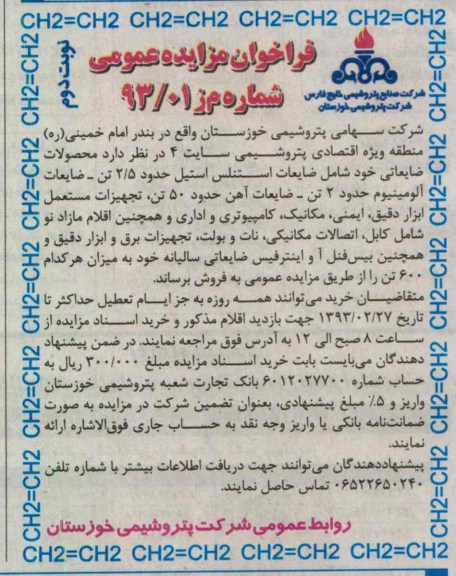 CH2=CH2 CH2=CH2 CH2=CH2 CH2=CH2
نوبت دوم
فراخوان مزایده عمومی
شماره مز ۹۳/۰۱
شرکت صنایع پتروشیمی خلیج فارس
شرکت پتروشیمی خوزستان
شرکت سهامی پتروشیمی خوزستان واقع در بندر امام خمینی(ره)
منطقه ویژه اقتصادی پتروشیمی سایت ۴ در نظر دارد محصولات
ضایعاتی خود شامل ضایعات استنلس استیل حدود ۲/۵ تن ـ ضایعات
آلومینیوم حدود ۲ تن ـ ضایعات آهن حدود ۵۰ تن، تجهیزات مستعمل
ابزار دقیق، ایمنی، مکانیک، کامپیوتری و اداری و همچنین اقلام مازاد نو
شامل کابل، اتصالات مکانیکی، نات و بولت، تجهیزات برق و ابزار دقیق و
همچنین بیس‌فنل آ و اینترفیس ضایعاتی سالیانه خود به میزان هرکدام
۶۰۰ تن را از طریق مزایده عمومی به فروش برساند.
متقاضیان خرید می‌توانند همه روزه به جز ایام تعطیل حداکثر تا
تاریخ ۱۳۹۳/۰۲/۲۷ جهت بازدید اقلام مذکور و خرید اسناد مزایده از
ساعت ۸ صبح الی ۱۲ به آدرس فوق مراجعه نمایند. در ضمن پیشنهاد
دهندگان می‌بایست بابت خرید اسناد مزایده مبلغ ۳۰۰/۰۰۰ ریال به
حساب شماره ۶۰۱۲۰۲۷۷۰۰ بانک تجارت شعبه پتروشیمی خوزستان
واریز و ۵٪ مبلغ پیشنهادی، بعنوان تضمین شرکت در مزایده به صورت
ضمانت‌نامه بانکی یا واریز وجه نقد به حساب جاری فوق‌الاشاره ارائه
نمایند.
پیشنهاددهندگان می‌توانند جهت دریافت اطلاعات بیشتر با شماره تلفن
۰۶۵۲۲۶۵۰۲۴۰ تماس حاصل نمایند.
روابط عمومی شرکت پتروشیمی خوزستان
CH2=CH2 CH2=CH2 CH2=CH2 CH2=CH2
CH2=CH2 CH2=CH2 CH2=CH2 CH2=CH2 CH2=CH2
CH2=CH2 CH2=CH2 CH2=CH2 CH2=CH2 CH2=CH2